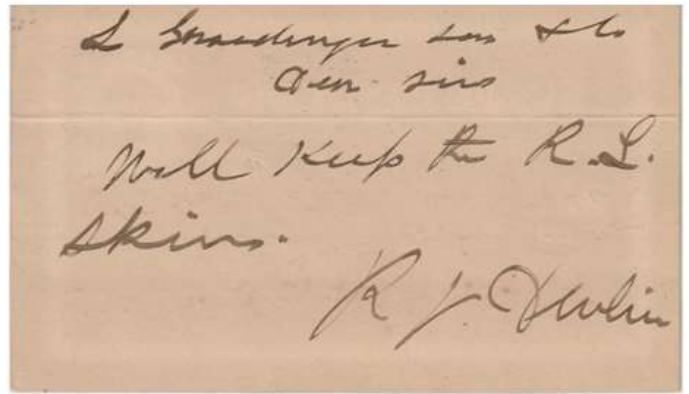 L Gnaedinger Son & Co
Dear Sirs
Will Keep the R.L.
skins.
R J Devlin